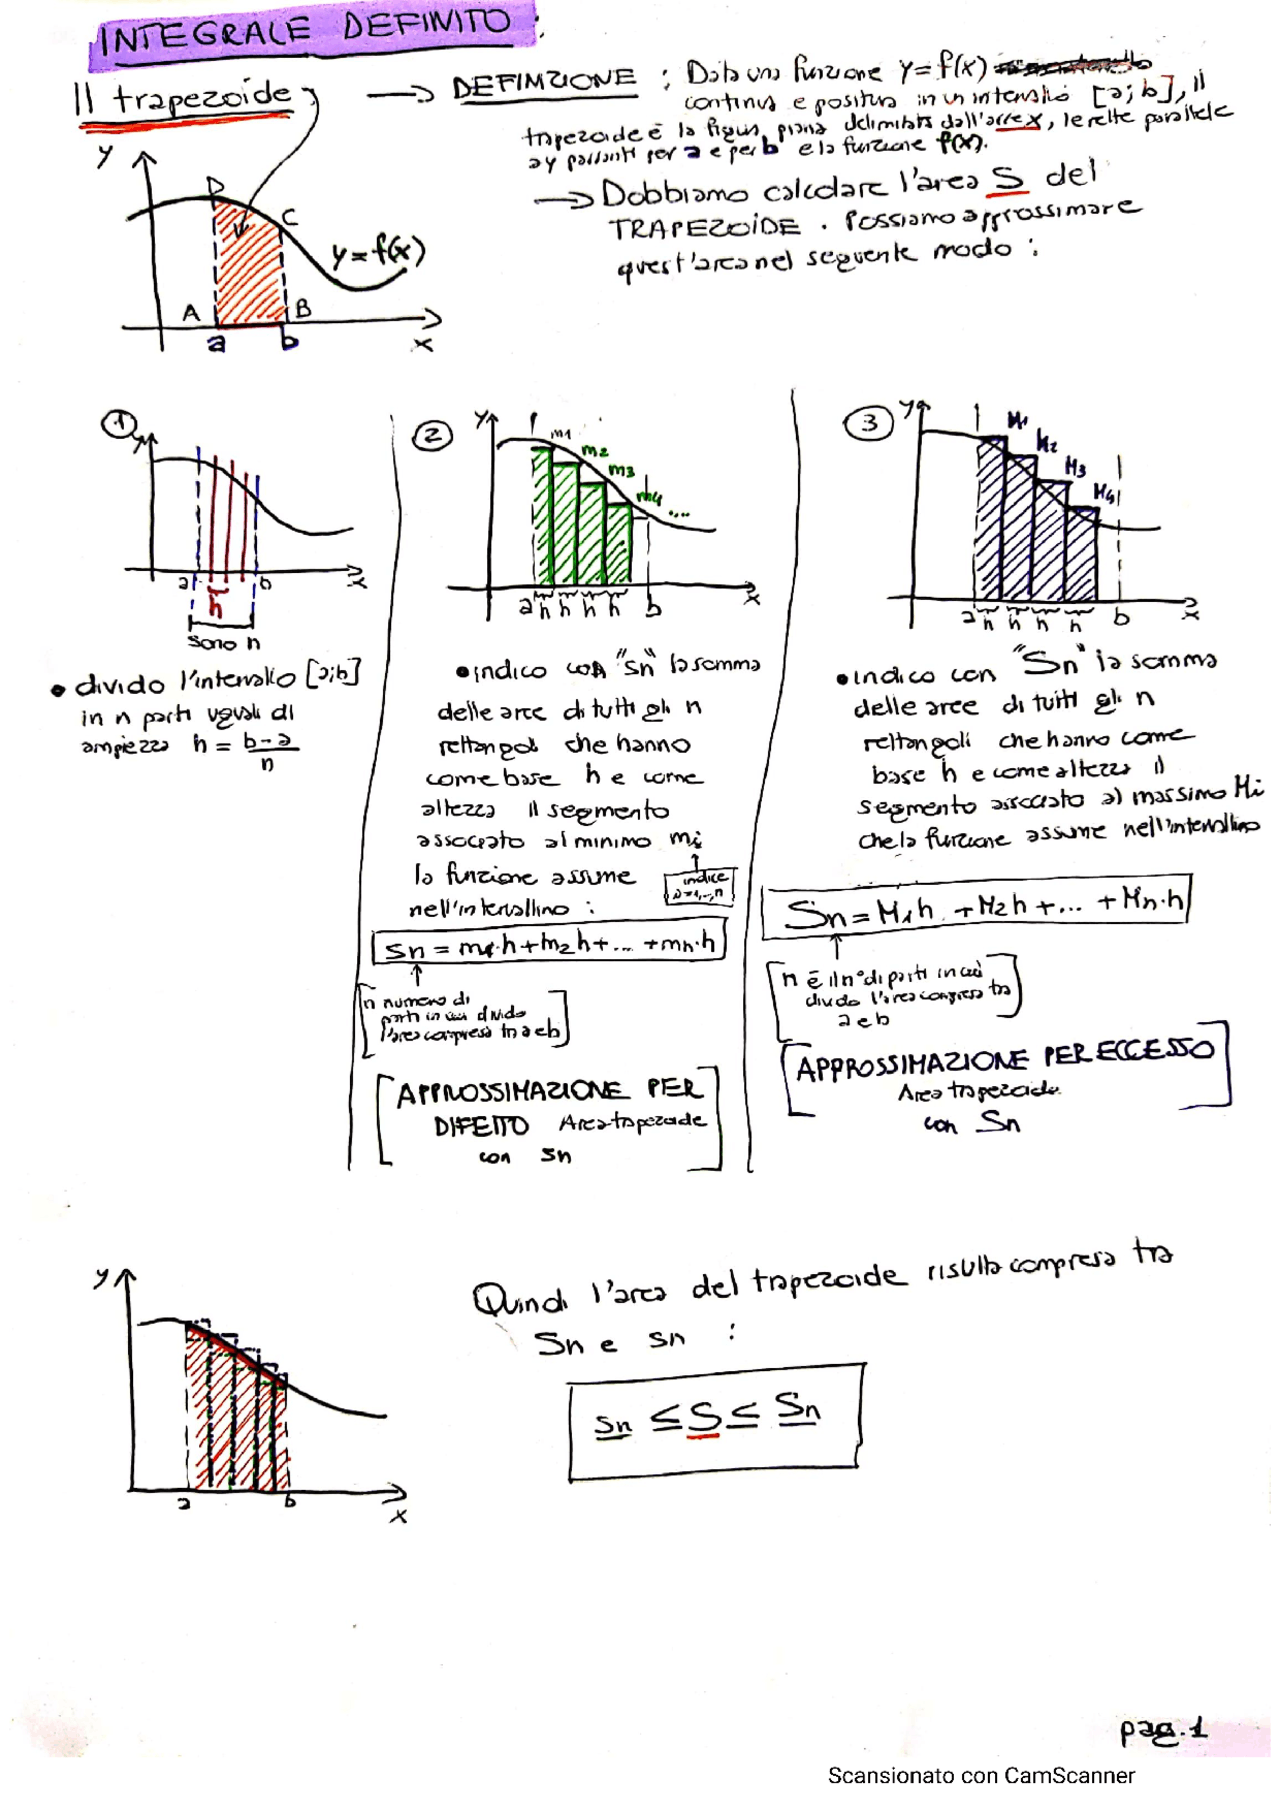 INTEGRALE DEFINITO :
Il trapezoide
→ DEFINIZIONE : Data una funzione y = f(x)
continua e positiva in un intervallo [a; b], il
trapezoide è la figura piana delimitata dall'asse x, le rette parallele
a y passanti per a e per b e la funzione f(x).
→ Dobbiamo calcolare l'area S del
TRAPEZOIDE . Possiamo approssimare
quest'area nel seguente modo :
y
D
C
y = f(x)
A
B
a
b
x
1
y
a
b
x
h
sono n
• divido l'intervallo [a;b]
in n parti uguali di
ampiezza h = b-a
n
2
y
m1
m2
m3
m4 ....
a h h h h b
x
• indico con "sn" la somma
delle aree di tutti gli n
rettangoli che hanno
come base h e come
altezza il segmento
associato al minimo mi
la funzione assume
indice
i=1,..,n
nell'intervallino :
sn = m1·h+m2h+... +mn·h
n numero di
parti in cui divido
l'area compresa tra a e b
APPROSSIMAZIONE PER
DIFETTO Area trapezoide
con sn
3
y
M1
M2
M3
M4
a h h h h b
x
• indico con "Sn" la somma
delle aree di tutti gli n
rettangoli che hanno come
base h e come altezza il
segmento associato al massimo Mi
che la funzione assume nell'intervallino
Sn = M1h +M2h +... +Mn·h
n è il n° di parti in cui
divido l'area compresa tra
a e b
APPROSSIMAZIONE PER ECCESSO
Area trapezoide
con Sn
y
a
b
x
Quindi l'area del trapezoide risulta compresa tra
Sn e sn :
sn ≤ S ≤ Sn
pag. 1
Scansionato con CamScanner